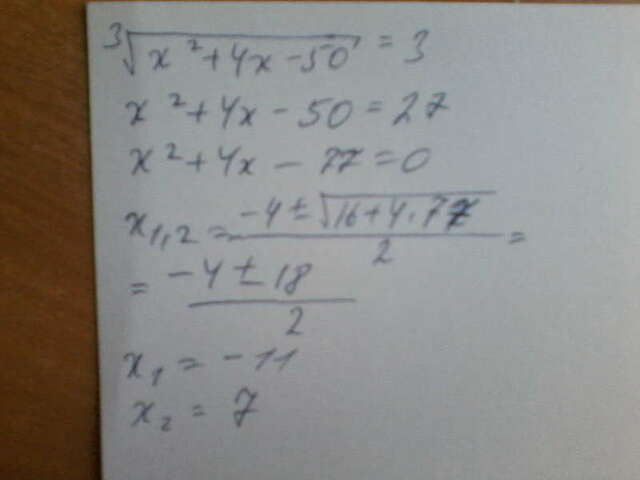 ∛(x²+4x-50) = 3
x²+4x-50=27
x²+4x-77=0
x₁,₂ = (-4±√(16+4·77))/2 =
= (-4±18)/2
x₁ = -11
x₂ = 7